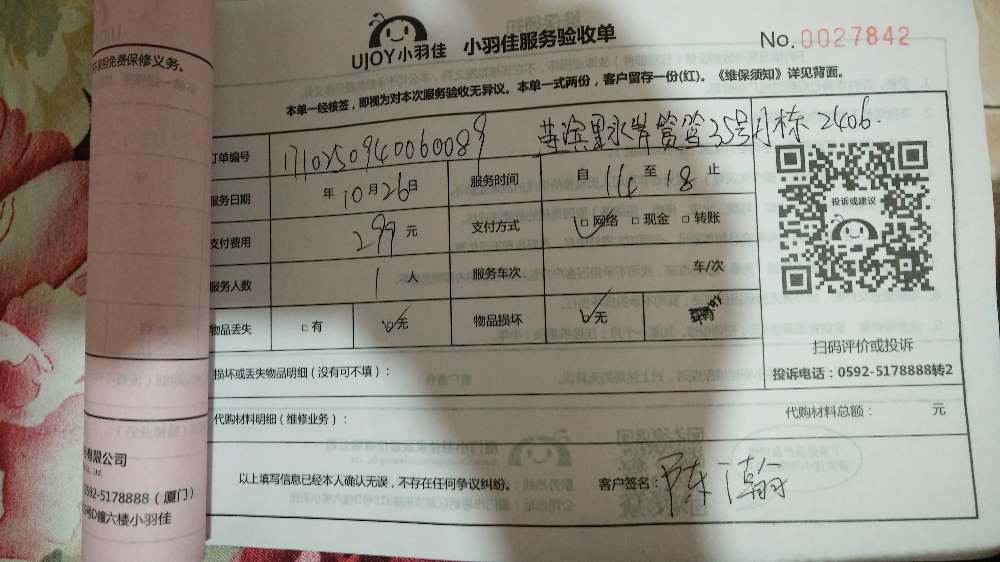 不承担免费保修义务。
UJOY小羽佳 小羽佳服务验收单
No. 0027842
本单一经核签，即视为对本次服务验收无异议。本单一式两份，客户留存一份(红)。《维保须知》详见背面。
订单编号 1710250940060089 35号 栋2406.
服务日期 年10月26日 服务时间 自14至18止
支付费用 299元 支付方式 □网络 □现金 □转账
服务人数 1人 服务车次 车/次
物品丢失 □有 □无 物品损坏 □无
投诉或建议
扫码评价或投诉
投诉电话：0592-5178888转2
损坏或丢失物品明细（没有可不填）：
代购材料明细（维修业务）： 代购材料总额： 元
以上填写信息已经本人确认无误，不存在任何争议纠纷。 客户签名：陈瀚
有限公司
Co., Ltd.
0592-5178888（厦门）
D幢六楼小羽佳